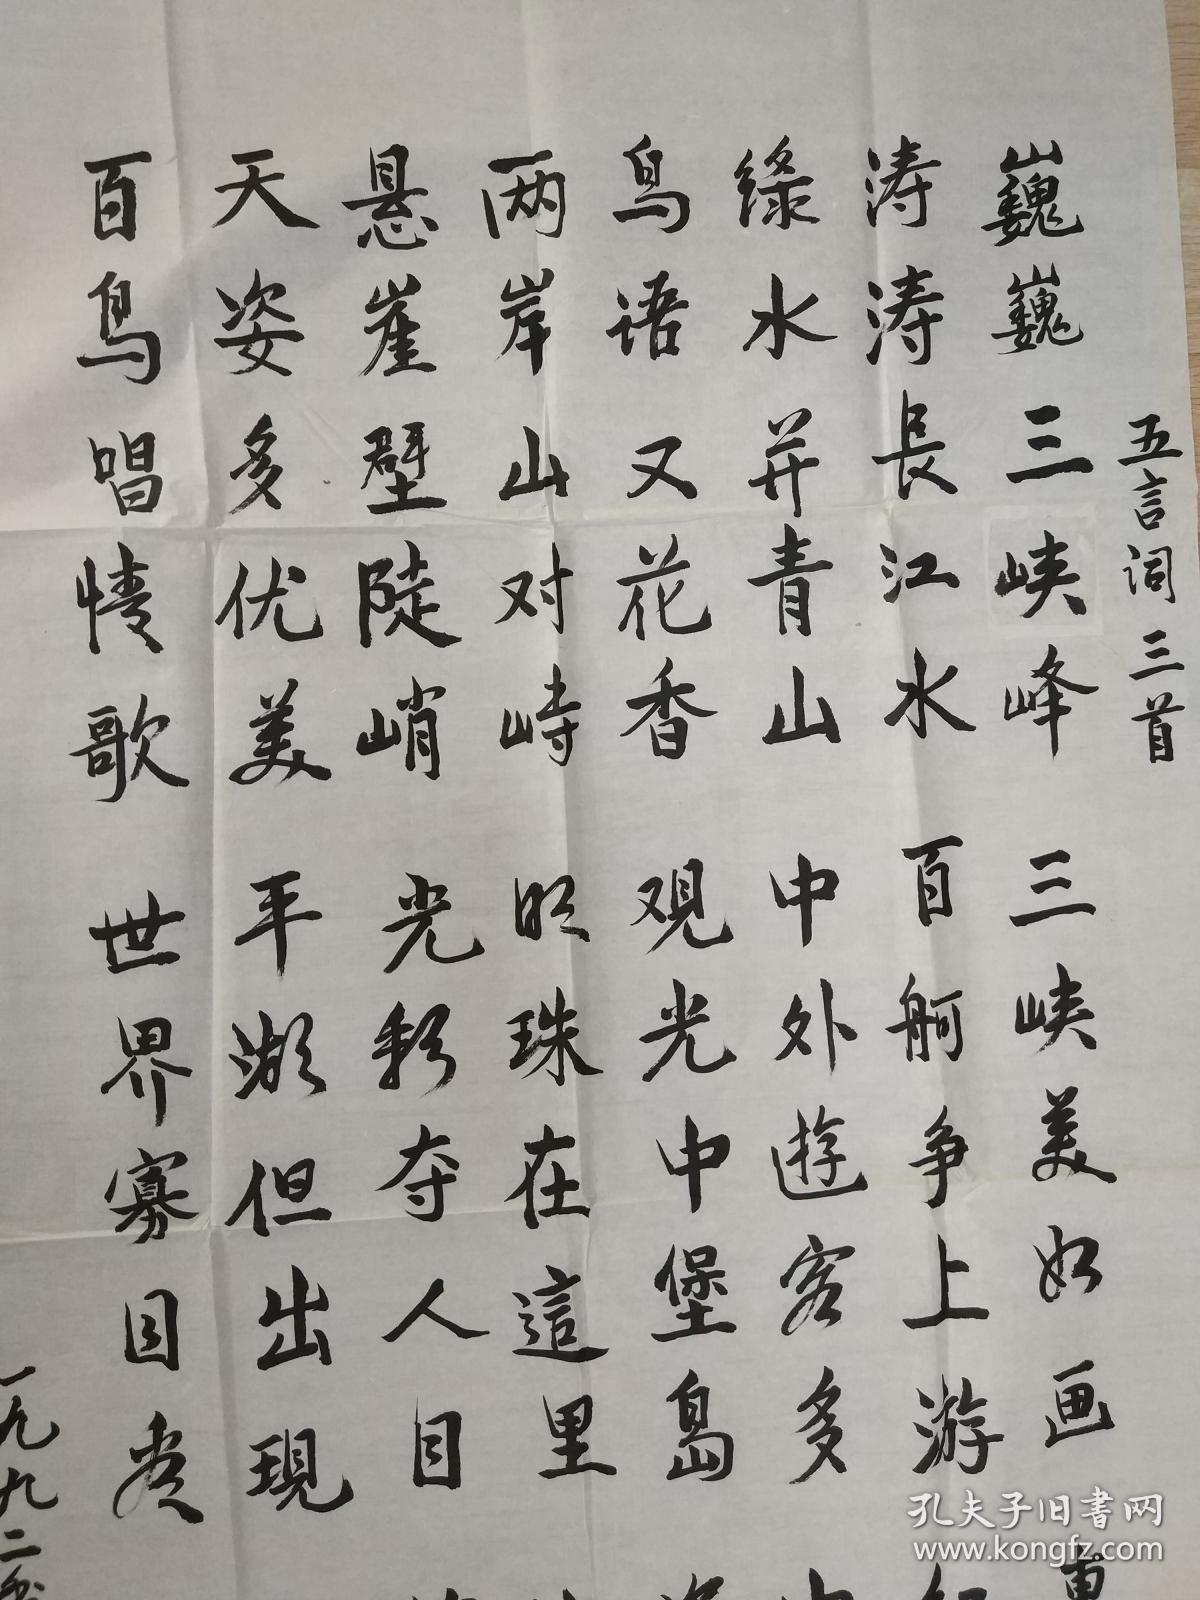 五言词三首
巍巍三峡峰 三峡美如画
涛涛長江水 百舸争上游
绿水并青山 中外遊客多
鸟语又花香 观光中堡岛
两岸山对峙 明珠在這里
悬崖壁陡峭 光彩夺人目
天姿多优美 平湖但出現
百鸟唱情歌 世界寡
一九九二
孔夫子旧书网
www.kongfz.com